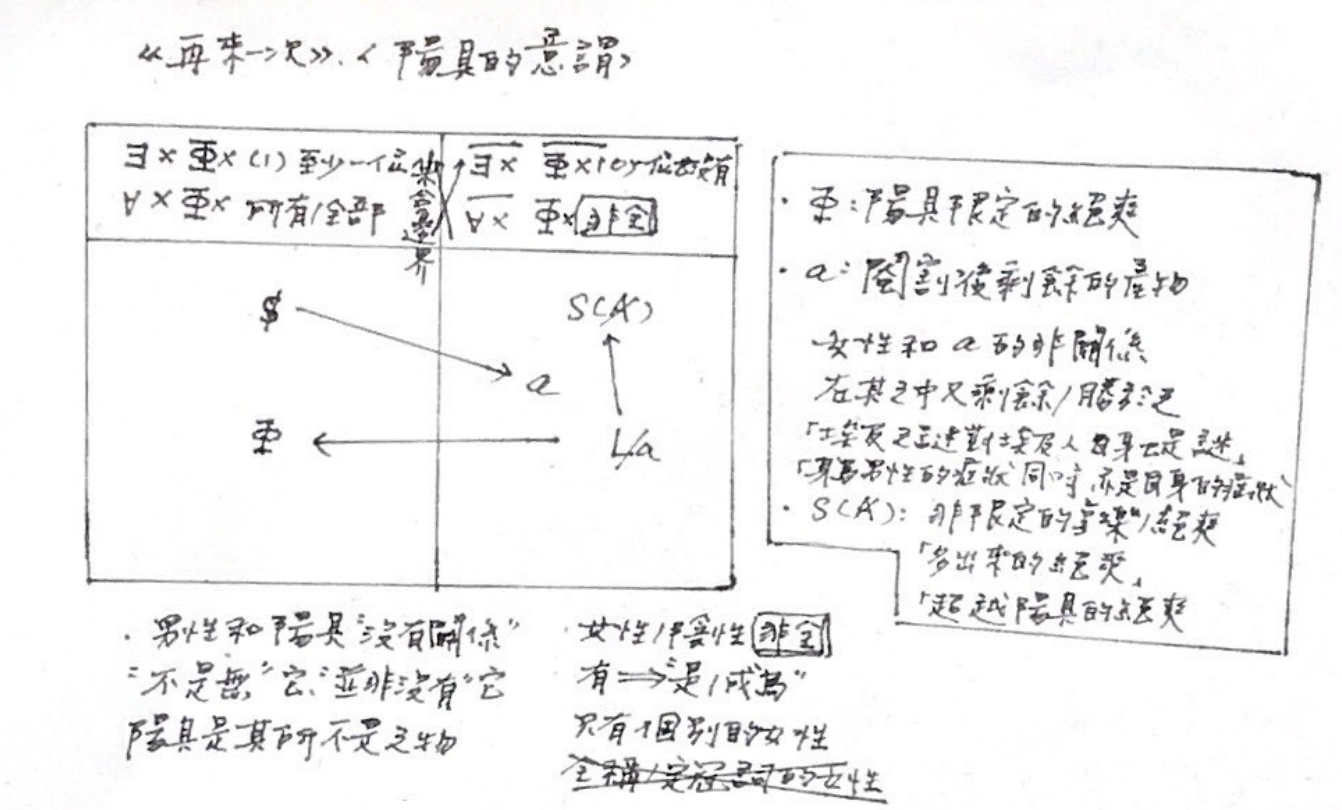 《再來一次》、〈陽具的意謂〉
∃x Φ̅x (1) 至少一位
∀x Φx 所有/全部
集合邊界
∃̅x̅ Φ̅x̅ (0) 一位都沒有
∀̅x̅ Φx 非全
$
S(A̸)
a
Φ
L̸a
・男性和陽具"沒有關係"
"不是無"它、"並非沒有"它
陽具是其所不是之物
・女性/陰性 非全
有⟹"是/成為"
只有個別的女性
全稱/定冠詞的女性
・Φ:陽具限定的絕爽
・a:閹割後剩餘的產物
女性和a的非關係
在其之中又剩餘/勝於己
「埃及之謎對埃及人自身亦是謎」
「身為男性的症狀同時亦是自身的症狀」
・S(A̸):非限定的享樂/絕爽
「多出來的絕爽」
「超越陽具的絕爽